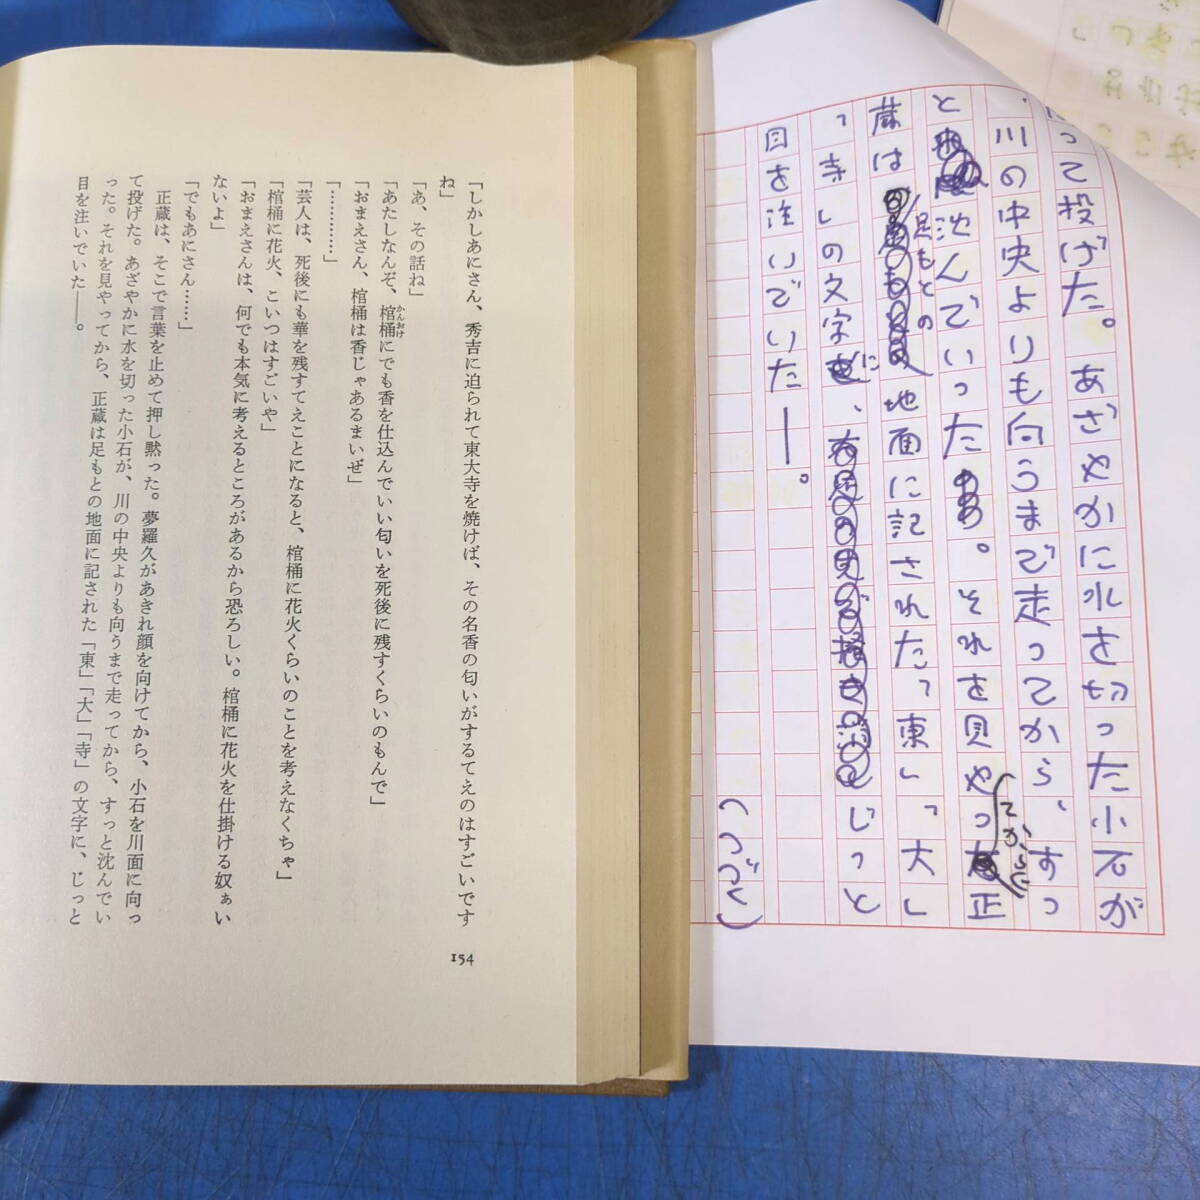 って投げた。あざやかに水を切った小石が
、川の中央よりも向うまで走ってから、すっ
と沈んでいった。それを見やってから正
蔵は足もとの地面に記された「東」「大」
「寺」の文字に、じっと
目を注いでいた――。
(つづく)
「しかしあにさん、秀吉に迫られて東大寺を焼けば、その名香の匂いがするてえのはすごいです
ね」
「あ、その話ね」
「あたしなんぞ、棺桶にでも香を仕込んでいい匂いを死後に残すくらいのもんで」
かんおけ
「おまえさん、棺桶は香じゃあるまいぜ」
「…………」
「芸人は、死後にも華を残すてえことになると、棺桶に花火くらいのことを考えなくちゃ」
「棺桶に花火、こいつはすごいや」
「おまえさんは、何でも本気に考えるところがあるから恐ろしい。棺桶に花火を仕掛ける奴ぁい
ないよ」
「でもあにさん……」
正蔵は、そこで言葉を止めて押し黙った。夢羅久があきれ顔を向けてから、小石を川面に向っ
て投げた。あざやかに水を切った小石が、川の中央よりも向うまで走ってから、すっと沈んでい
った。それを見やってから、正蔵は足もとの地面に記された「東」「大」「寺」の文字に、じっと
目を注いでいた――。
154